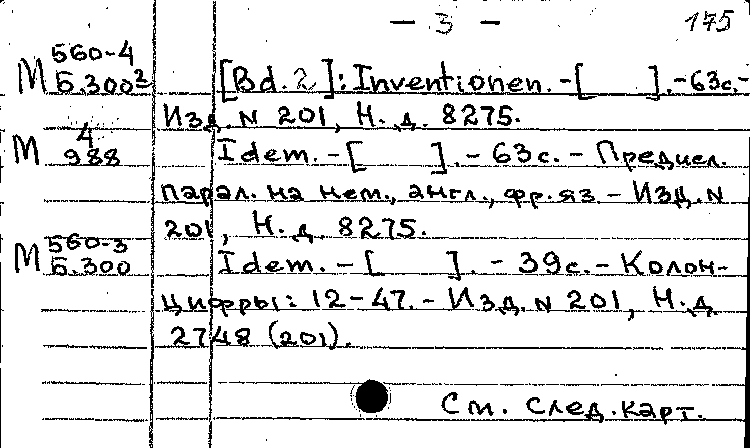 — 3 — 175
М 560-4
Б.300² [Bd. 2]: Inventionen. - [ ]. - 63с. -
Изд. N 201, Н. д. 8275.
М 4
988 Idem. - [ ]. - 63с. - Предисл.
парал. на нем., англ., фр. яз. - Изд. N
201, Н. д. 8275.
М 560-3
Б.300 Idem. - [ ]. - 39с. - Колон-
цифры: 12-47. - Изд. N 201, Н. д.
2748 (201).
См. след. карт.